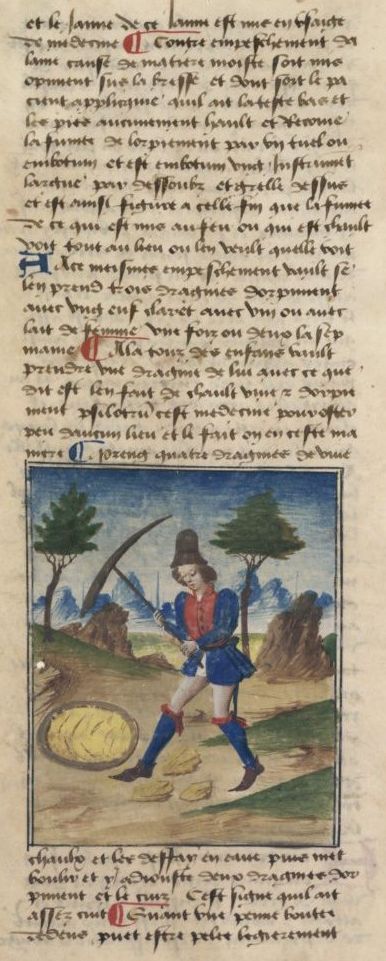 et le Jaune de ce Jaune est mis en vsaige
de medecine ¶ Contre empeschement da
laine cause de matiere moiste soit mis
opiment sus la bresse et dont soit le pa
cient applicquie quil ait la teste bas et
les pies aucunement hault et Recoiue
la fumee de lorpiement par vn tuel ou
embotum et est embotum vng Instrumet
largue par dessoubz et grelle dessus
et est ainsi figure a celle fin que la fumee
de ce qui est mis au feu ou qui est chault
voit tout au lieu ou len veult quelle voit
A ce meismes empeschement vault se
len prend trois dragmes dorpiment
auec vng euf claret auec vin ou auec
lait de femme vne foiz ou deux la sep
maine ¶ A la toux des enfans vault
prendre vne dragme de lui auec ce que
dit est len fait de chault viue et dorpie
ment psilotru cest medecine pour oster
peu daucun lieu et le fait on en ceste ma
niere ¶ preng quatre dragmes de viue
chaulx et les deffay en eaue puis met
boulir et y adiouste deux dragmes dor
piment et le cuiz Cest signe quil ait
assez cuit ¶ Quant vne penne boutee
dedens puet estre pelee legierement